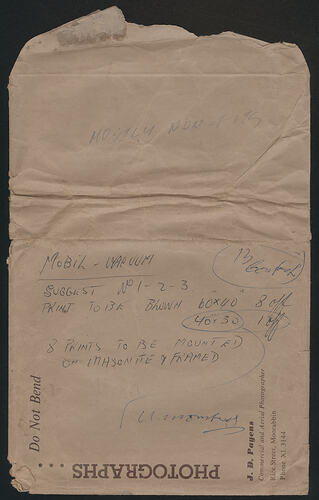 MOBIL - VACUUM
SUGGEST Nº 1-2-3
PRINT TO BE BROWN 60x40 8 off
40x30 1 off
8 PRINTS TO BE MOUNTED
ON MASONITE & FRAMED
Do Not Bend
PHOTOGRAPHS ...
J. D. Pagens
Commercial and Aerial Photographer
Street, Moorabbin
Phone XL 3144